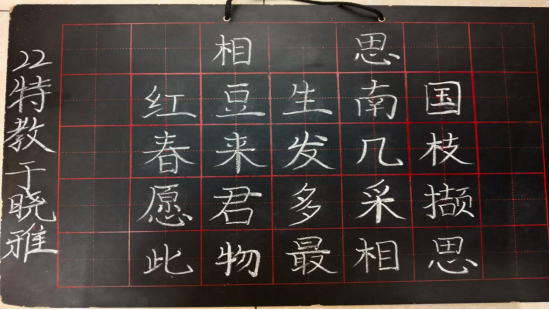 相思
红豆生南国
春来发几枝
愿君多采撷
此物最相思
22特教于晓雅